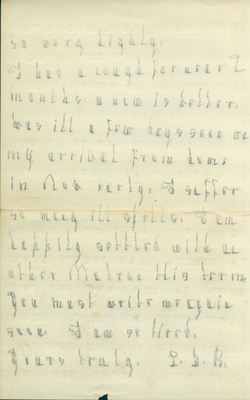 so very highly.
I had a cough for over 2
months. a now is better.
Was ill a few days soon
my arrival from home
in Nov. early. I suffer
so many ill spells. I am
happily settled with
other Matron this term.
You must write me again
soon. I am so tired.
Yours truly. L. B.